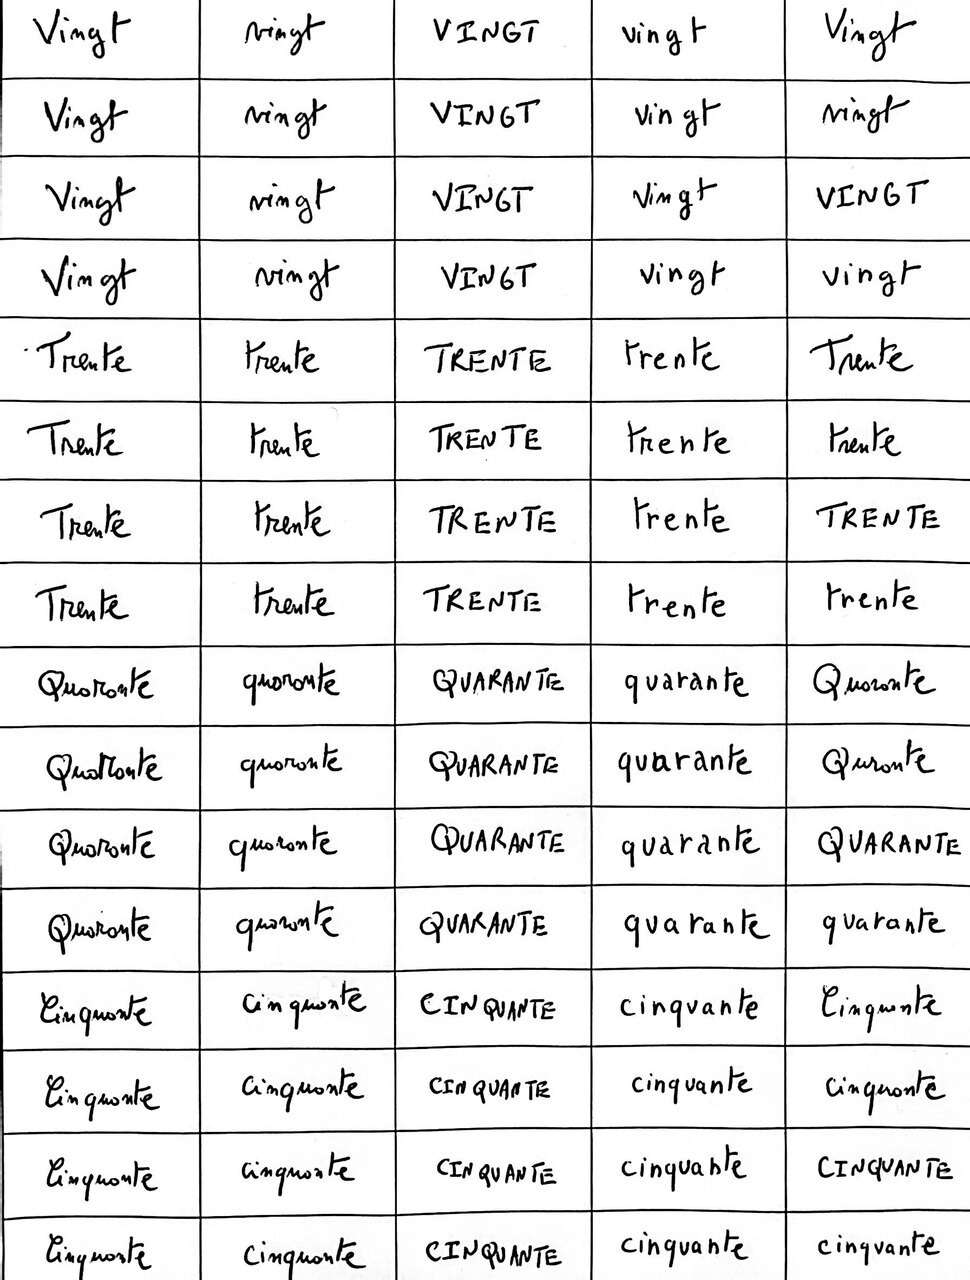 Vingt vingt VINGT vingt Vingt
Vingt vingt VINGT vingt vingt
Vingt vingt VINGT Vingt VINGT
Vingt vingt VINGT vingt vingt
Trente trente TRENTE trente Trente
Trente trente TRENTE trente trente
Trente trente TRENTE trente TRENTE
Trente trente TRENTE trente trente
Quarante quarante QUARANTE quarante Quarante
Quarante quarante QUARANTE quarante Qurante
Quarante quarante QUARANTE quarante QUARANTE
Quarante quarante QUARANTE quarante quarante
Cinquante cinquante CINQUANTE cinquante Cinquante
Cinquante cinquante CINQUANTE cinquante cinquante
Cinquante cinquante CINQUANTE cinquante CINQUANTE
Cinquante cinquante CINQUANTE cinquante cinquante